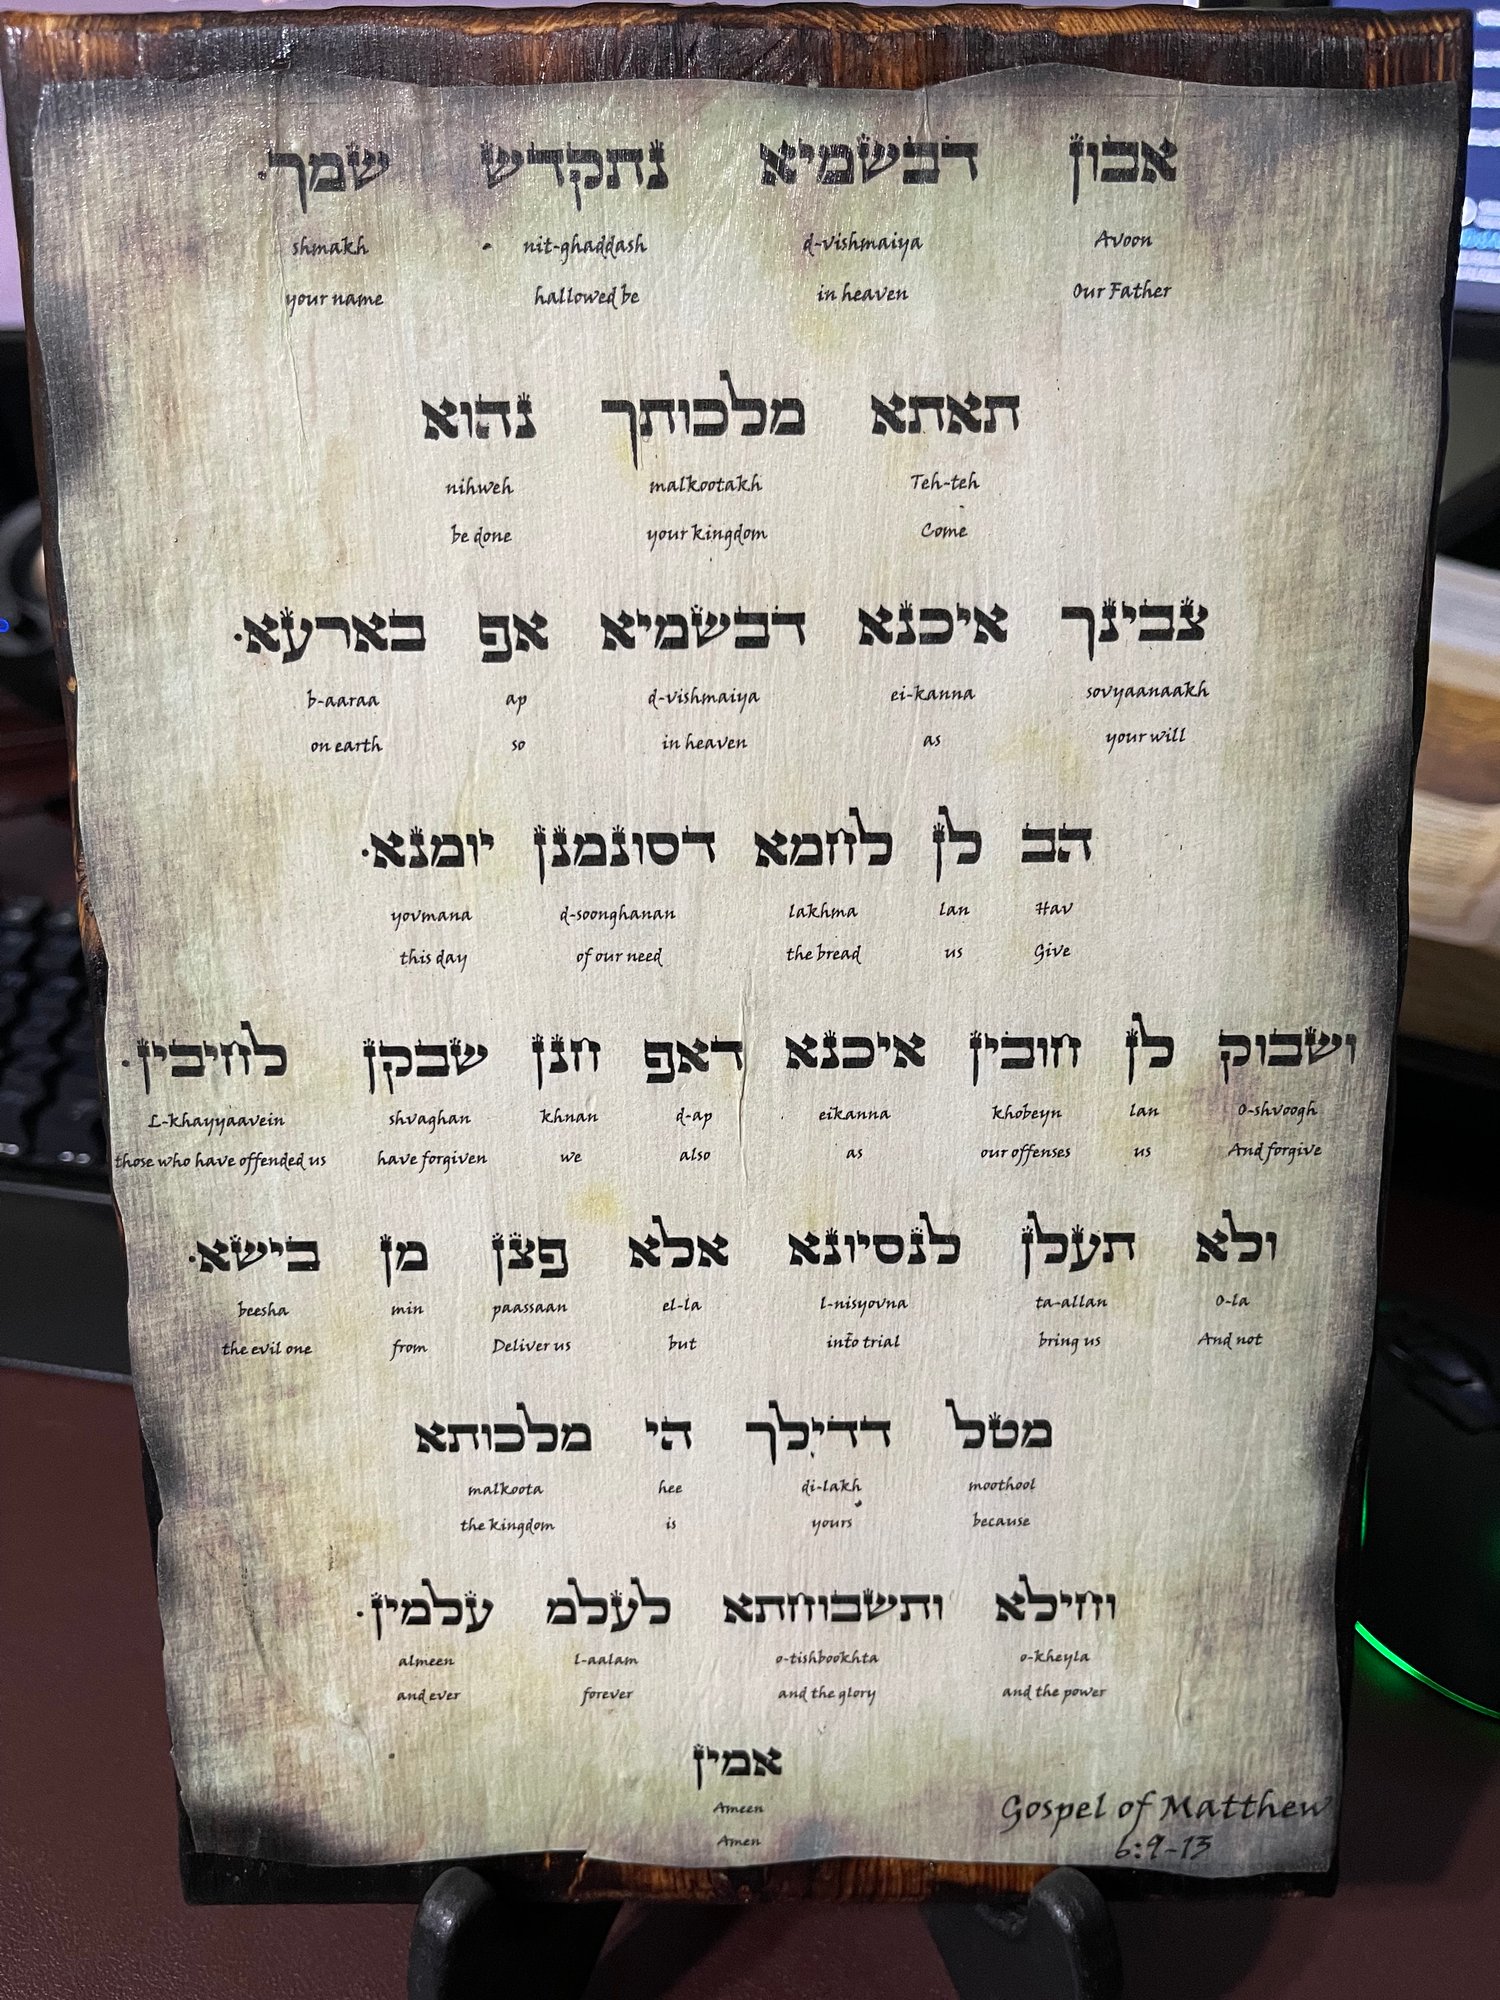 אבון דבשמיא נתקדש שמך.
Avoon d-vishmaiya nit-ghaddash shmakh
Our Father in heaven hallowed be your name
תאתא מלכותך נהוא
Teh-teh malkootakh nihweh
Come your kingdom be done
צבינך איכנא דבשמיא אפ בארעא.
sovyaanaakh ei-kanna d-vishmaiya ap b-aaraa
your will as in heaven so on earth
הב לן לחמא דסונמנן יומנא.
Hav lan lakhma d-soonghanan yovmana
Give us the bread of our need this day
ושבוק לן חובין איכנא דאפ חנן שבקן לחיבין.
O-shvoogh lan khobeyn eikanna d-ap khnan shvaghan L-khayyaavein
And forgive us our offenses as also we have forgiven those who have offended us
ולא תעלן לנסיונא אלא פצן מן בישא.
O-la ta-allan l-nisyovna el-la paassaan min beesha
And not bring us into trial but Deliver us from the evil one
מטל דדילך הי מלכותא
moothool di-lakh hee malkoota
because yours is the kingdom
וחילא ותשבוחתא לעלמ עלמין.
o-kheyla o-tishbookhta l-aalam almeen
and the power and the glory forever and ever
אמין
Ameen
Amen
Gospel of Matthew
6:9-13